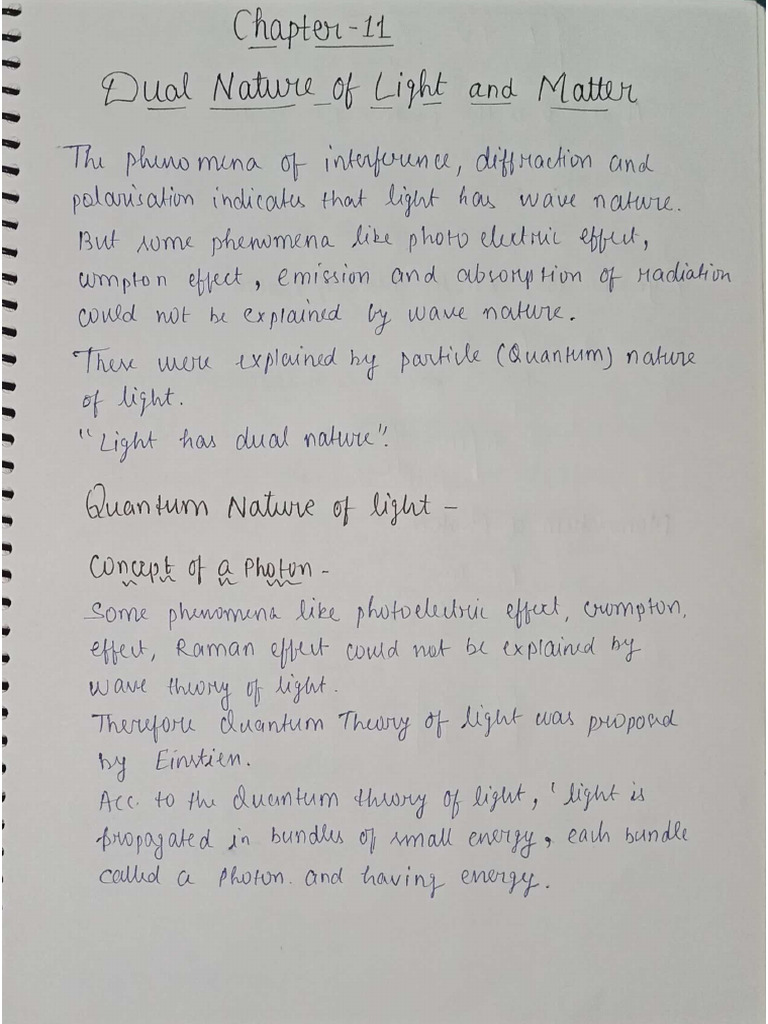 Chapter-11
Dual Nature of Light and Matter
The phenomena of interference, diffraction and
polarisation indicates that light has wave nature.
But some phenomena like photo electric effect,
compton effect, emission and absorption of radiation
could not be explained by wave nature.
These were explained by particle (Quantum) nature
of light.
"Light has dual nature".
Quantum Nature of light -
Concept of a Photon -
Some phenomena like photoelectric effect, crompton.
effect, Raman effect could not be explained by
wave theory of light.
Therefore Quantum Theory of light was proposed
by Einstien.
Acc. to the Quantum theory of light, ' light is
propagated in bundles of small energy, each bundle
called a Photon. and having energy.